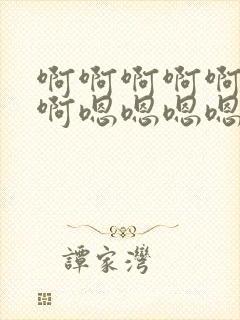 啊啊啊啊啊
啊嗯嗯嗯嗯
譚家灣